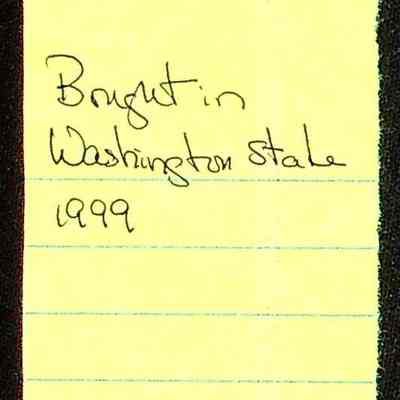 Bought in
Washington State
1999